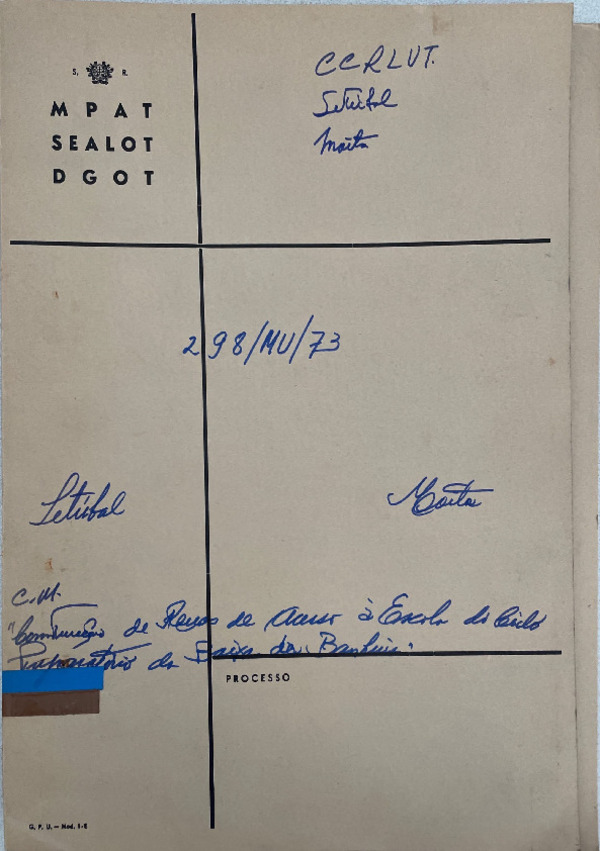 S. R.
MPAT
SEALOT
DGOT
CCRLVT.
Setúbal
Moita
298/MU/73
Setúbal
Moita
C.M.
"Construção de de Acesso à Escola do Ciclo
Preparatório da Baixa da Banheira".
PROCESSO
G. P. U. — Mod. 1-E